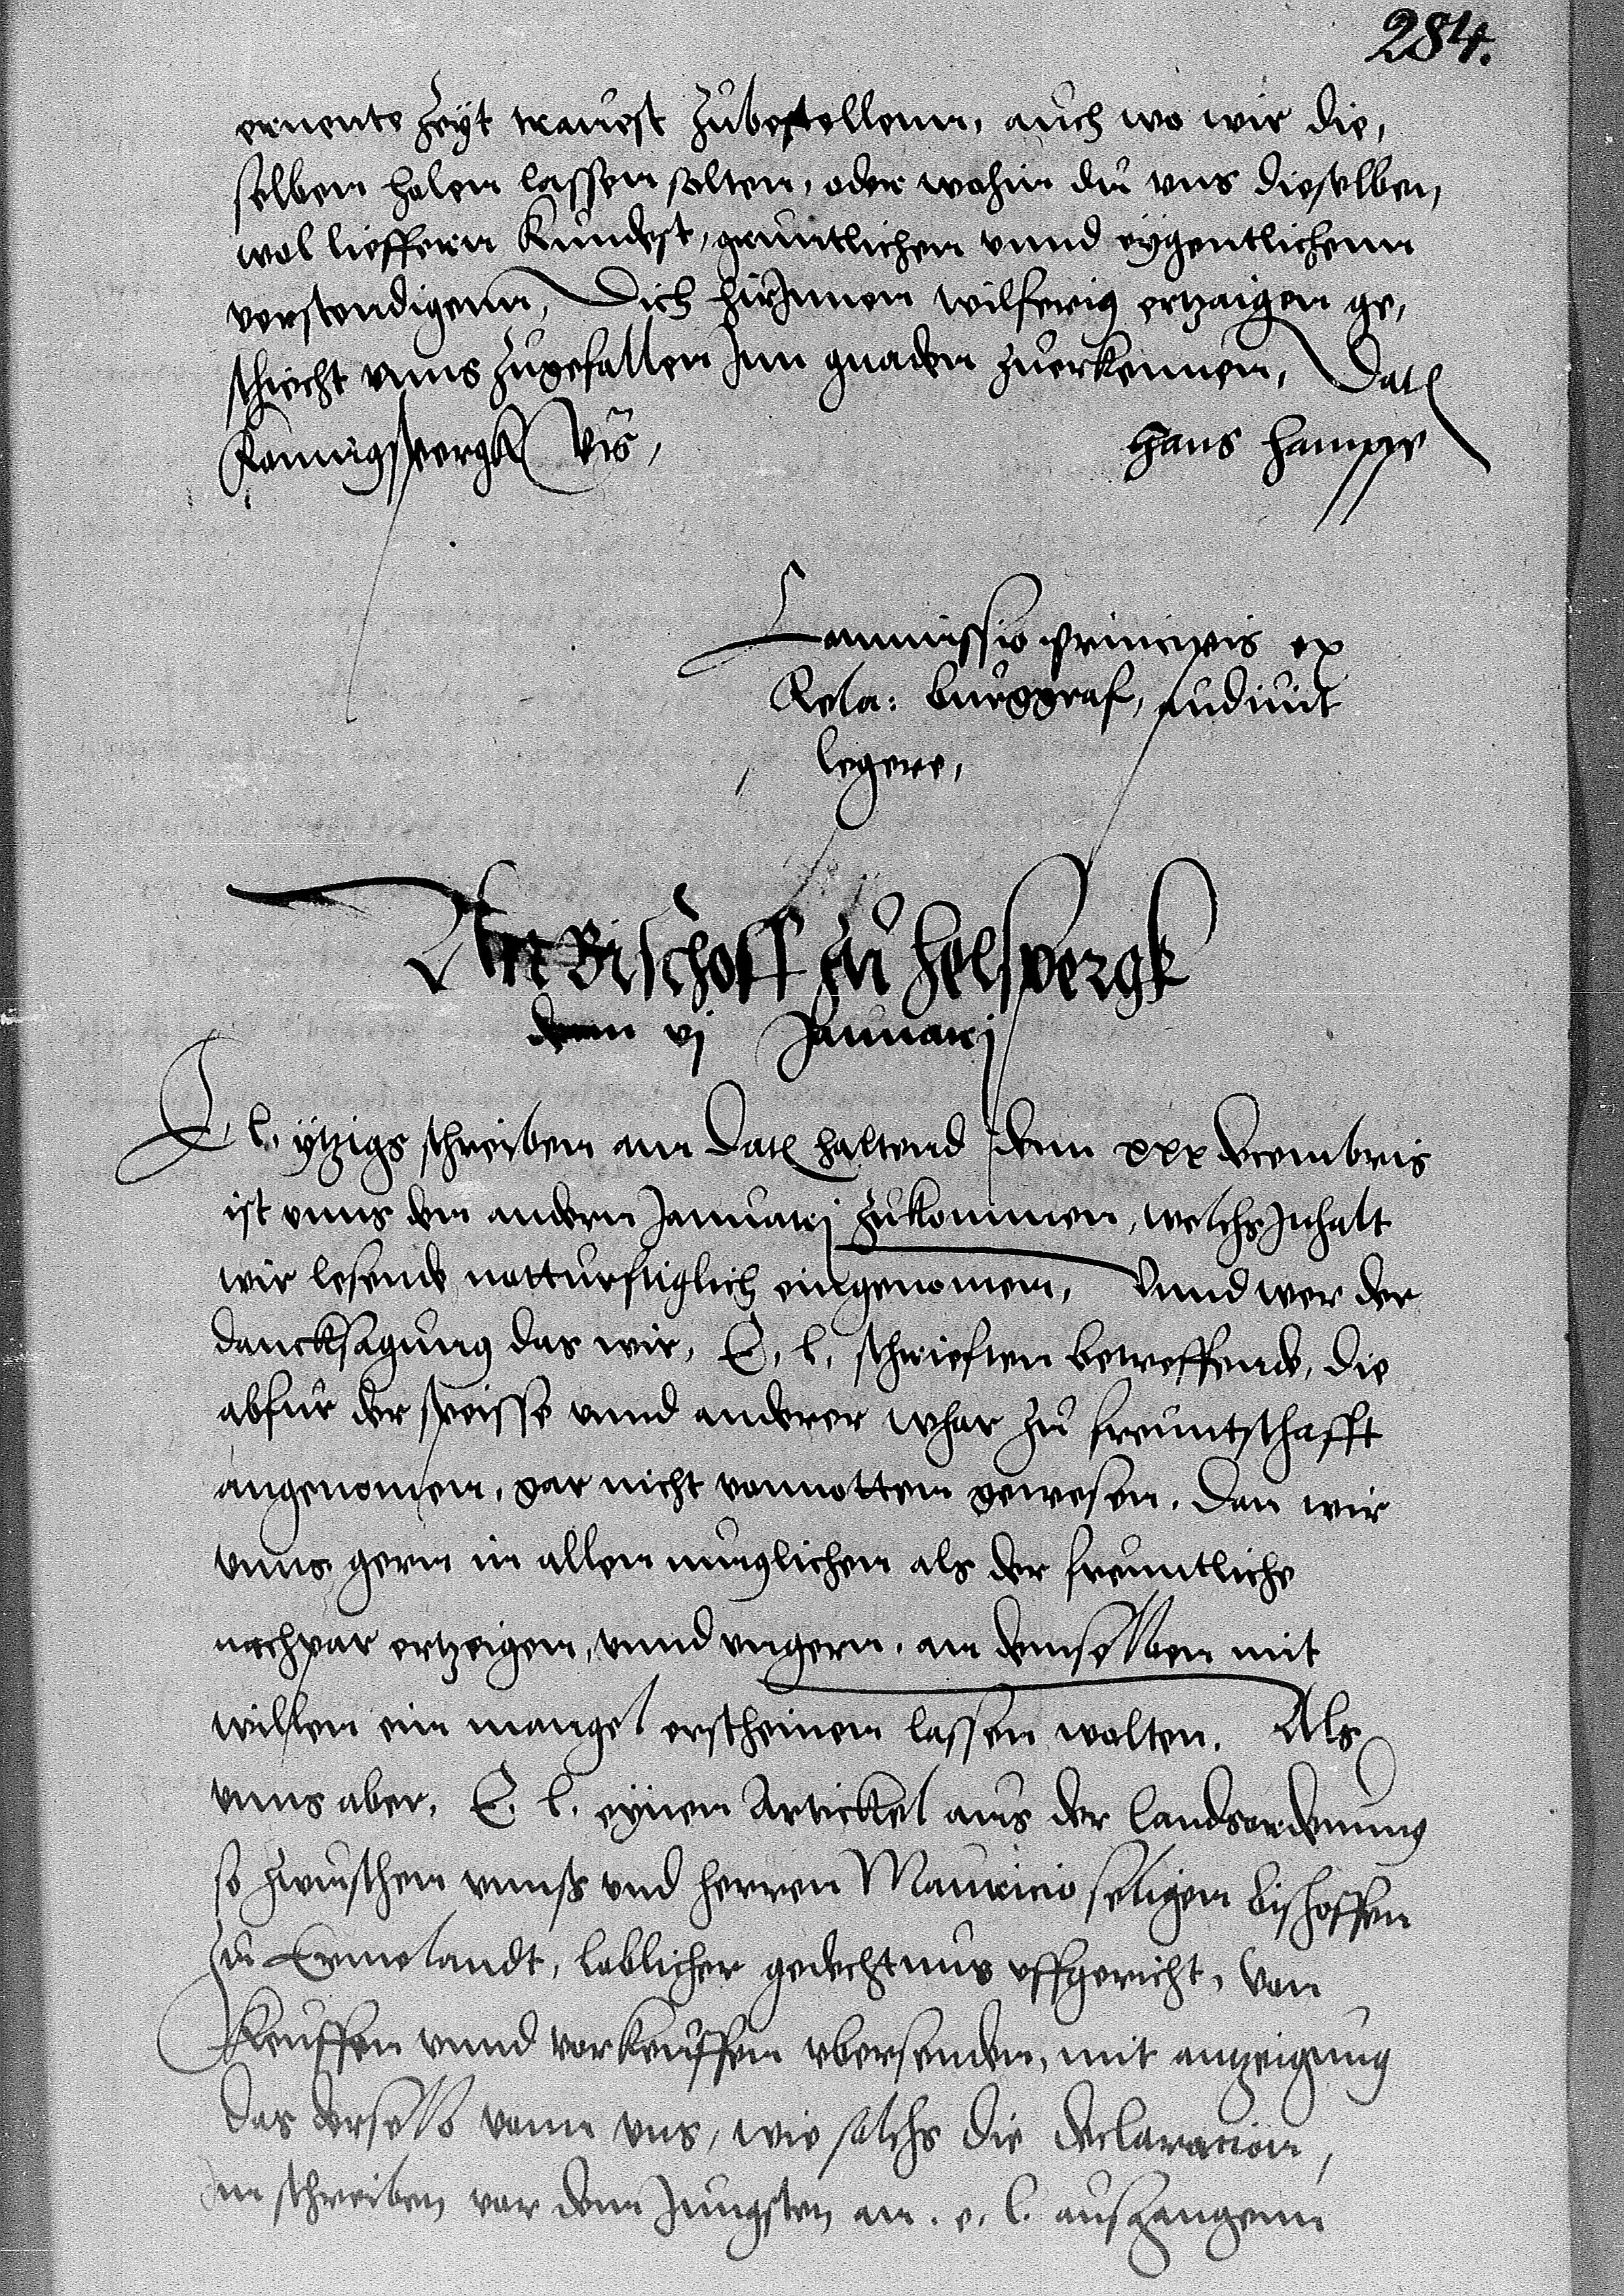 284.
ernente Zeyt trauest Zubestellenn, auch wo wir die,
selben holen lassen solten, oder wohin du vns dieselben,
wol lieffern kundest, gruntlichen vnnd eygentlichenn
verstendigenn, Dich hirInnen wilferig ertzaigen ge,
schicht vnns Zugefallen Inn gnaden Zuerkennen, Datl
Konnigspergk Vts,
Hans Hamppe
Commissio principis ex
Rela: burggraf, audiuit
legere,
An Bischoff zu helspergk
denn vj Januarj
E. l. ytzigs schreiben am Datl haltend denn xxx Decembris
ist vnns den andern Januarj Zukommen, welchs Inhalt
wir lesende notturftiglich eingenomen, Vnnd wer der
dancksagung das wir, E. l. schrieften betreffende, die
abfur der speisse vnnd anderer whar zu freuntschafft
angenomen, gar nicht vonnotten gewesen. Dan wir
vnns gern in allem muglichen als der freuntliche
nachpar ertzeigen, vnnd vngern, an demselben mit
willen ein mangel erscheinen lassen wolten. Als
vnns aber, E. l. eynen Artickel aus der landsordenung
so zwuschen vnnß vnd herren Mauricio seligen Bischoffen
zu Ermelandt, loblicher gedechtnus vffgericht, von
keuffen vnnd vorkeuffen vbersenden, mit antzeigung
das derselb vonn vns, wie solchs die declaracion,
Im schreiben vor dem Jungsten an. e. l. ausgangenn